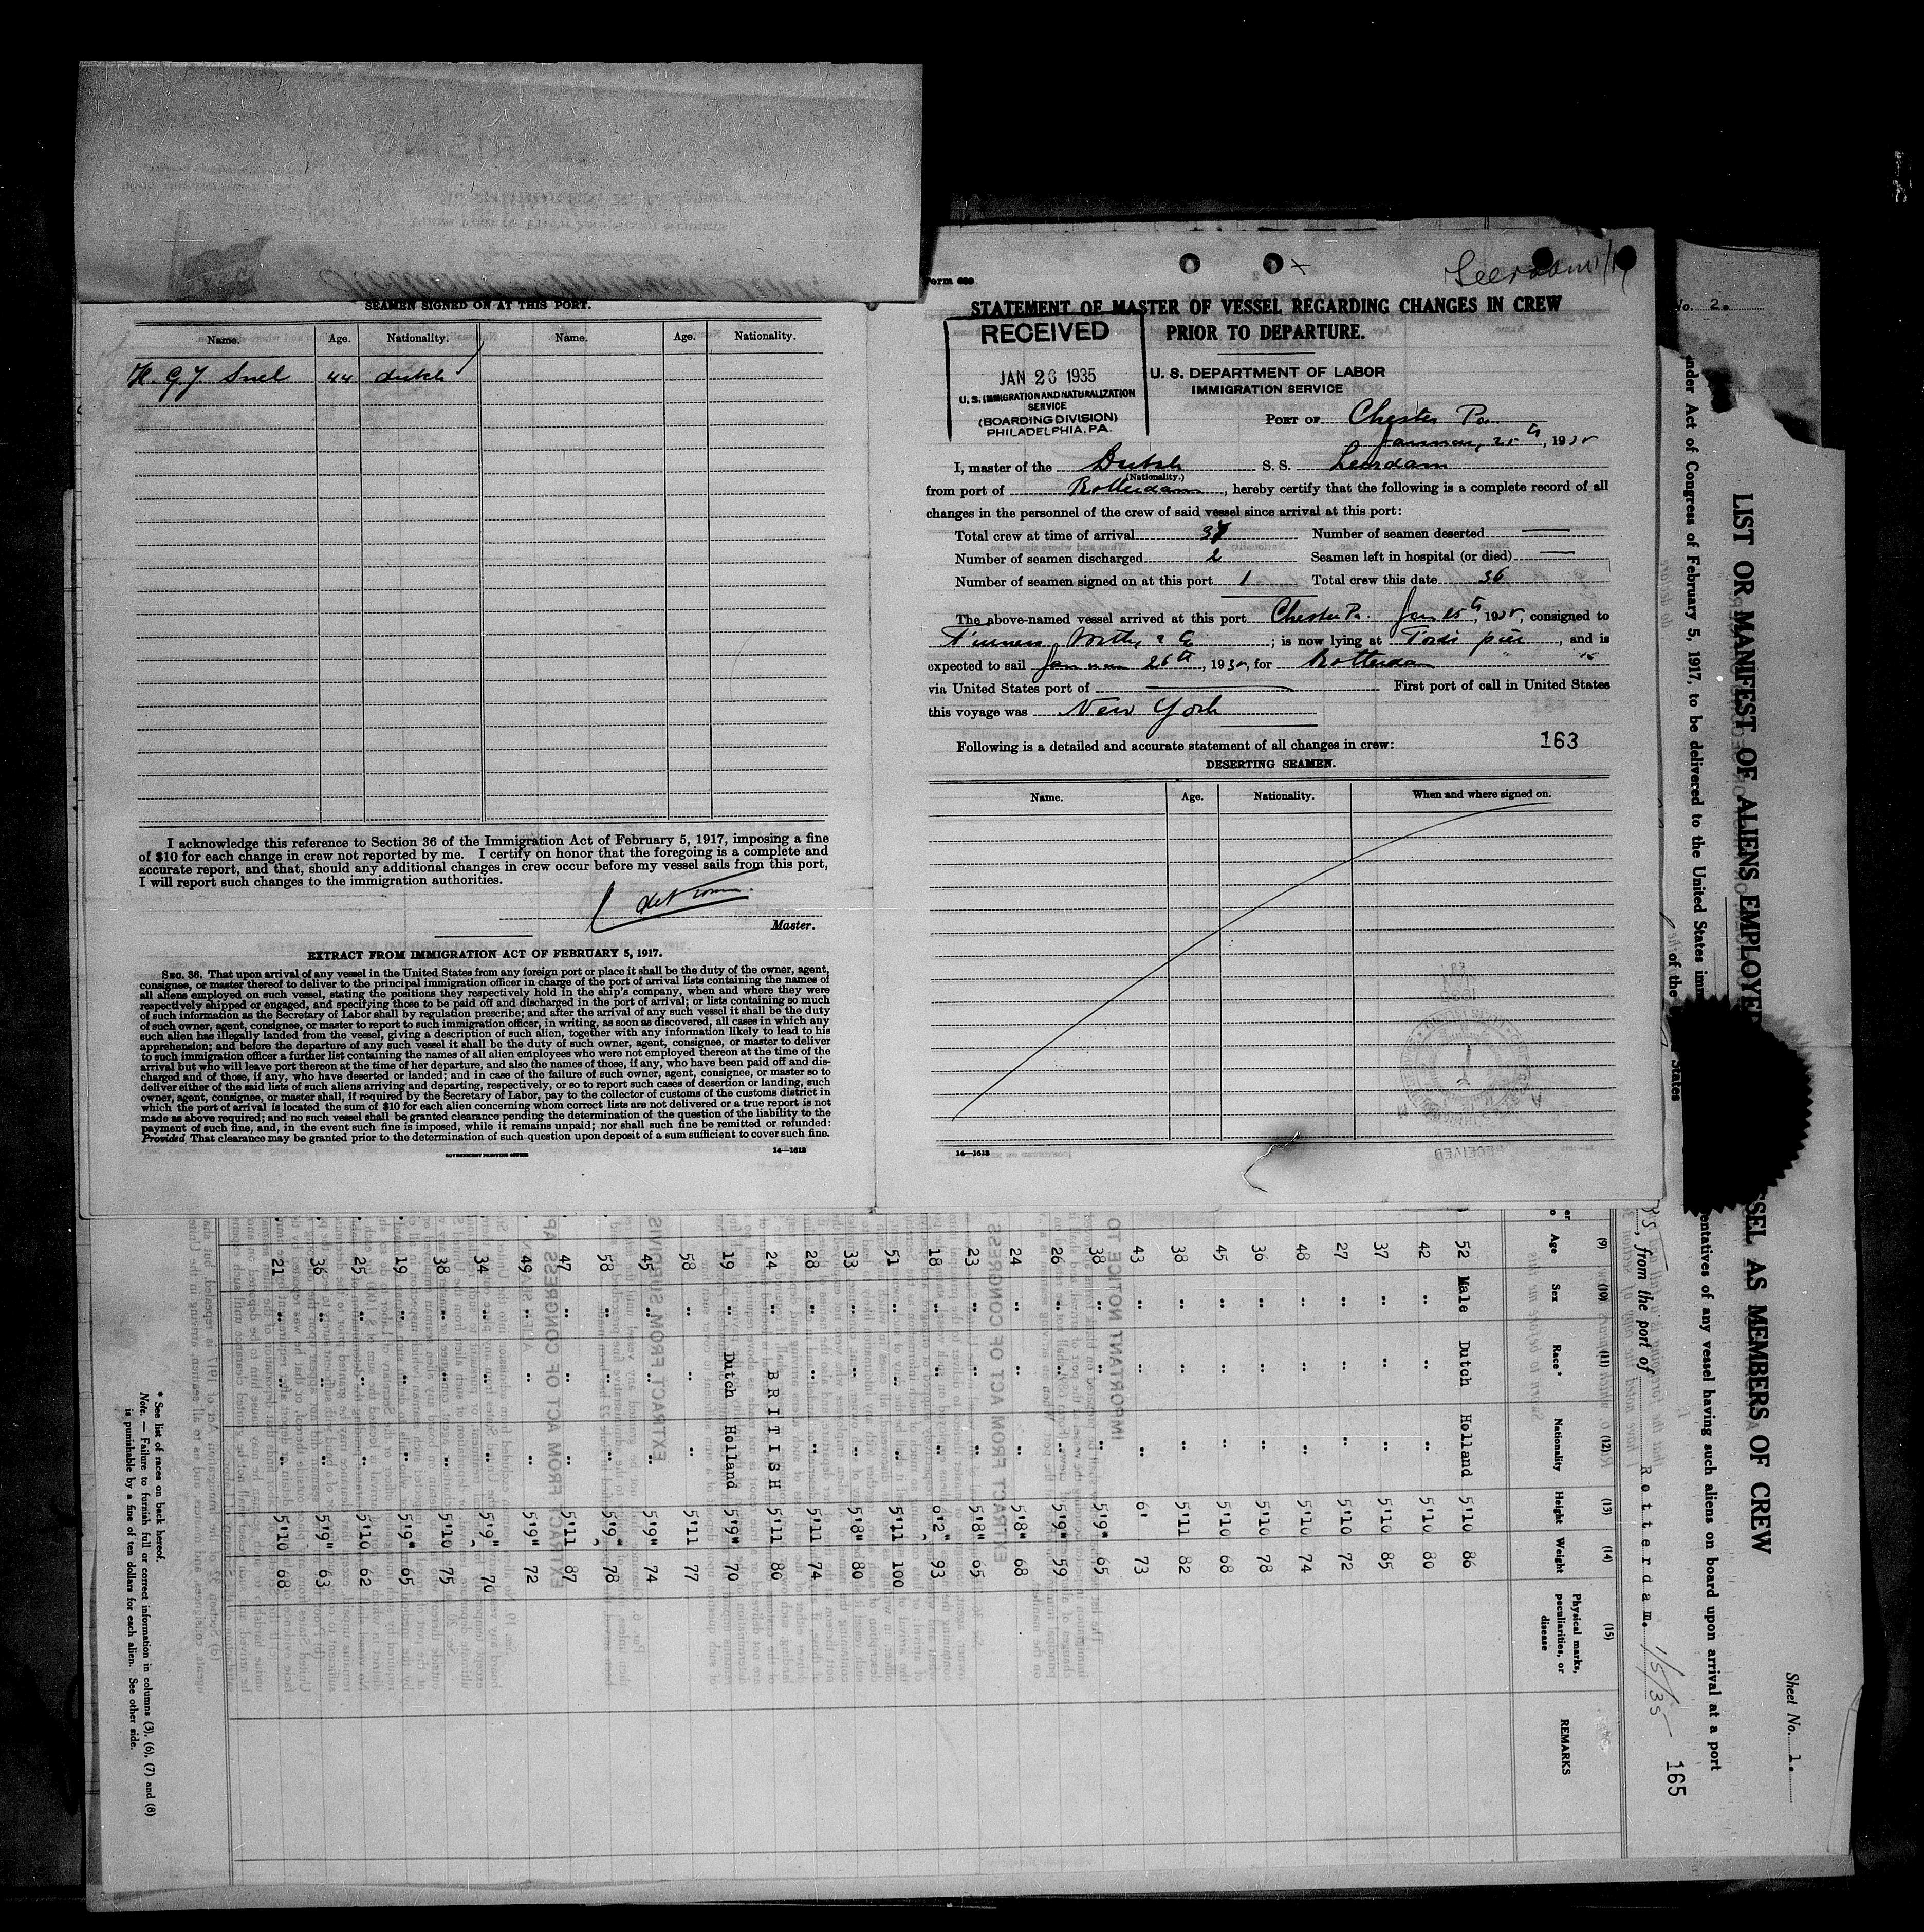 SEAMEN SIGNED ON AT THIS PORT.
Name. Age. Nationality. Name. Age. Nationality.
H. G. J. Snel 44 dutch
I acknowledge this reference to Section 36 of the Immigration Act of February 5, 1917, imposing a fine
of $10 for each change in crew not reported by me. I certify on honor that the foregoing is a complete and
accurate report, and that, should any additional changes in crew occur before my vessel sails from this port,
I will report such changes to the immigration authorities.
Master.
EXTRACT FROM IMMIGRATION ACT OF FEBRUARY 5, 1917.
SEC. 36. That upon arrival of any vessel in the United States from any foreign port or place it shall be the duty of the owner, agent,
consignee, or master thereof to deliver to the principal immigration officer in charge of the port of arrival lists containing the names of
all aliens employed on such vessel, stating the positions they respectively hold in the ship's company, when and where they were
respectively shipped or engaged, and specifying those to be paid off and discharged in the port of arrival; or lists containing so much
of such information as the Secretary of Labor shall by regulation prescribe; and after the arrival of any such vessel it shall be the duty
of such owner, agent, consignee, or master to report to such immigration officer, in writing, as soon as discovered, all cases in which any
such alien has illegally landed from the vessel, giving a description of such alien, together with any information likely to lead to his
apprehension; and before the departure of any such vessel it shall be the duty of such owner, agent, consignee, or master to deliver
to such immigration officer a further list containing the names of all alien employees who were not employed thereon at the time of the
arrival but who will leave port thereon at the time of her departure, and also the names of those, if any, who have been paid off and dis-
charged and of those, if any, who have deserted or landed; and in case of the failure of such owner, agent, consignee, or master so to
deliver either of the said lists of such aliens arriving and departing, respectively, or so to report such cases of desertion or landing, such
owner, agent, consignee, or master shall, if required by the Secretary of Labor, pay to the collector of customs of the customs district in
which the port of arrival is located the sum of $10 for each alien concerning whom correct lists are not delivered or a true report is not
made as above required; and no such vessel shall be granted clearance pending the determination of the question of the liability to the
payment of such fine, and, in the event such fine is imposed, while it remains unpaid; nor shall such fine be remitted or refunded:
Provided, That clearance may be granted prior to the determination of such question upon deposit of a sum sufficient to cover such fine.
GOVERNMENT PRINTING OFFICE 14—1613
Form 689
Leerdam
STATEMENT OF MASTER OF VESSEL REGARDING CHANGES IN CREW
PRIOR TO DEPARTURE.
RECEIVED
JAN 26 1935
U. S. IMMIGRATION AND NATURALIZATION
SERVICE
(BOARDING DIVISION)
PHILADELPHIA, PA.
U. S. DEPARTMENT OF LABOR
IMMIGRATION SERVICE
PORT OF Chester Pa.
January, 25th, 1935
I, master of the Dutch S. S. Leerdam
(Nationality.)
from port of Rotterdam, hereby certify that the following is a complete record of all
changes in the personnel of the crew of said vessel since arrival at this port:
Total crew at time of arrival 37 Number of seamen deserted —
Number of seamen discharged 2 Seamen left in hospital (or died) —
Number of seamen signed on at this port 1 Total crew this date 36
The above-named vessel arrived at this port Chester Pa. Jan 25th, 1935, consigned to
; is now lying at Fords pier, and is
expected to sail January 26th, 1935, for Rotterdam
via United States port of — First port of call in United States
this voyage was New York
Following is a detailed and accurate statement of all changes in crew: 163
DESERTING SEAMEN.
Name. Age. Nationality. When and where signed on.
14—1613
No. 2.
Sheet No. 1.
LIST OR MANIFEST OF ALIENS EMPLOYE SEL AS MEMBERS OF CREW
nder Act of Congress of February 5, 1917, to be delivered to the United States imm entatives of any vessel having such aliens on board upon arrival at a port
of the States
, from the port of Rotterdam. 1/5/35 165
(9) (10) (11) (12) (13) (14) (15)
Age Sex Race* Nationality Height Weight Physical marks, peculiarities, or disease REMARKS
52 Male Dutch Holland 5'10 86
42 " " " 5'10 80
37 " " " 5'10 85
27 " " " 5'10 72
48 " " " 5'10 74
36 " " " 5'10 78
45 " " " 5'10 68
38 " " " 5'11 82
43 " " " 6' 73
38 " " " 5'9" 65
26 " " " 5'9" 59
24 " " " 5'8" 68
23 " " " 5'8" 65
18 " " " 6'2" 93
51 " " " 5'11 100
33 " " " 5'8" 80
28 " " " 5'11 74
24 " BRITISH 5'11 80
19 " Dutch Holland 5'9" 70
58 " " " 5'11 77
45 " " " 5'9" 74
58 " " " 5'9" 78
47 " " " 5'11 87
49 " " " 5'9" 72
34 " " " 5'9" 70
38 " " " 5'10 75
19 " " " 5'9" 65
25 " " " 5'10 62
36 " " " 5'9" 63
21 " " " 5'10 68
* See list of races on back hereof.
Note. — Failure to furnish full or correct information in columns (3), (6), (7) and (8)
is punishable by a fine of ten dollars for each alien. See other side.